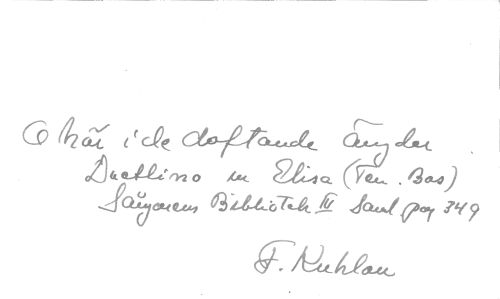 O här i de doftande ängder
Duettino ur Elisa (Ten. Bas)
Sångarens Bibliotek IV Saml pag 349
F. Kuhlau